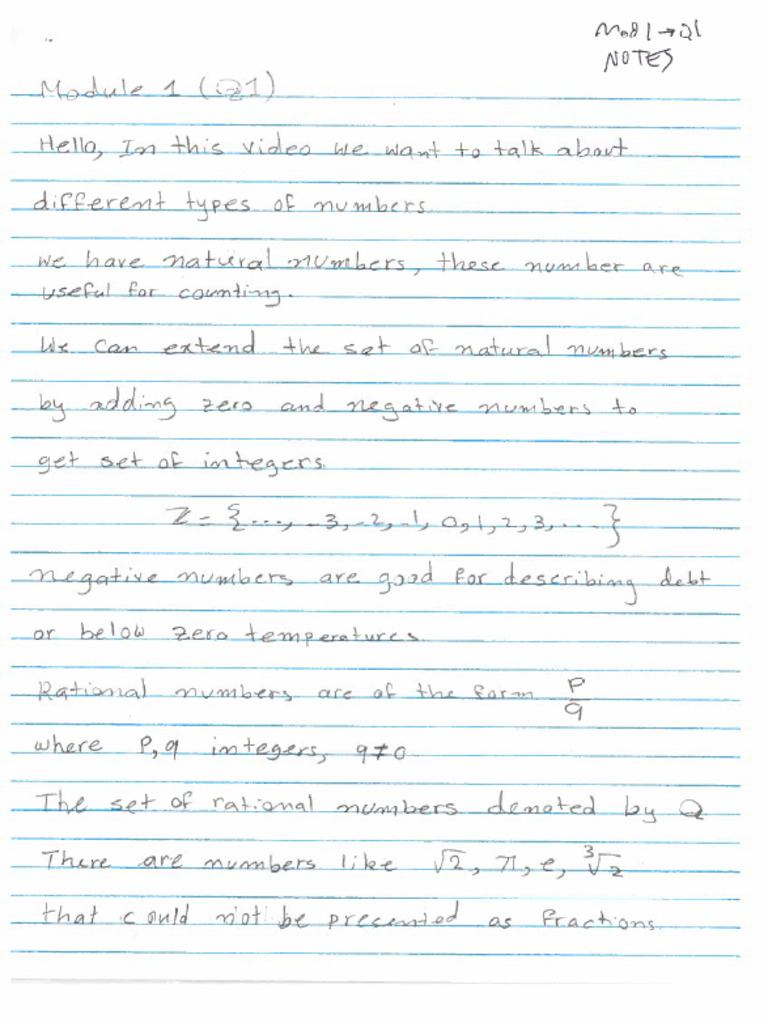 Mod 1 → Q1
NOTES
Module 1 (Q1)
Hello, In this video we want to talk about
different types of numbers.
we have natural numbers, these number are
useful for counting.
We can extend the set of natural numbers
by adding zero and negative numbers to
get set of integers.
Z = {..., -3, -2, -1, 0, 1, 2, 3, ....}
negative numbers are good for describing debt
or below zero temperatures.
Rational numbers are of the form P/q
where P, q integers, q ≠ 0
The set of rational numbers denoted by Q
There are numbers like √2, π, e, ∛2
that could not be presented as fractions.